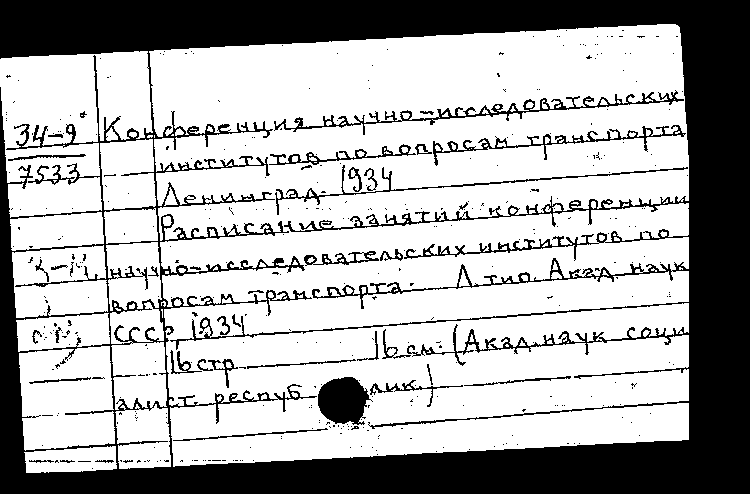 34-9 Конференция научно-исследовательских
7533 институтов по вопросам транспорта
Ленинград. 1934
Расписание занятий конференции
научно-исследовательских институтов по
вопросам транспорта. Л. тип. Акад. наук
СССР, 1934.
16 стр 16 см. (Акад. наук соци
алист. респуб лик.)